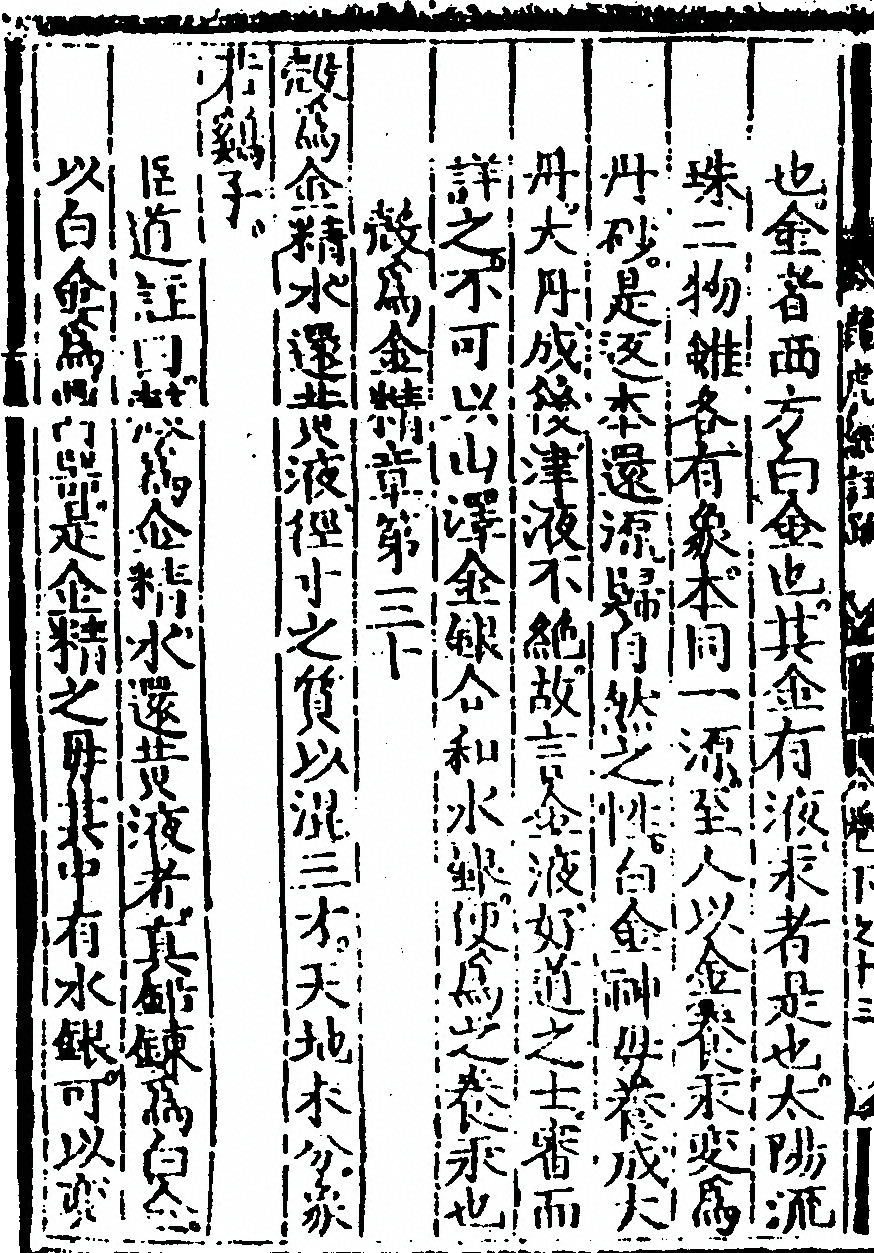 龍虎經註疏 卷下之十三
也金者西方白金也其金有液汞者是也太陽流
珠二物雖各有象本同一源至人以金養汞變爲
丹砂是返本還源歸自然之性白金神母養成大
丹大丹成後津液不絶故言金液好道之士審而
詳之不可以山澤金銀合和水銀便爲之養汞也
殼爲金精章第三十
殼爲金精水還黃液徑寸之質以混三才天地未分象
若鷄子
臣道註曰殼爲金精水還黃液者真鉛鍊爲白金
以白金爲鼎器是金精之母其中有水銀可以變